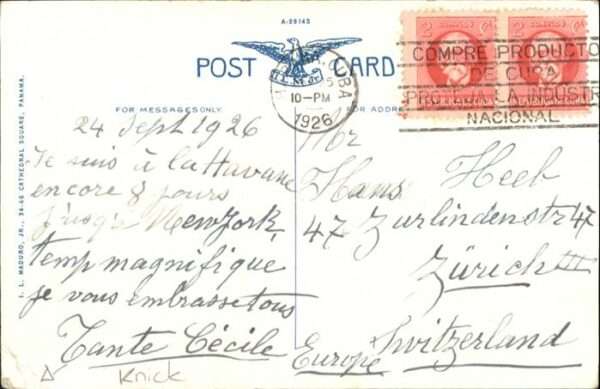 A-99145
POST CARD
I. L. M. Jr.
HABANA, CUBA
10-PM
1926
2 2
COMPRE PRODUCTO
DE CUBA
PROTEJA LA INDUSTR
NACIONAL
FOR MESSAGES ONLY.
FOR ADDRE
I. L. MADURO, JR., CATHEDRAL SQUARE, PANAMA.
24 Sept 1926
Je suis à la Havane
encore 8 jours
jusqu'à New York,
temp magnifique
je vous embrasse tous
Tante Cécile
Knick
Mr
Hans Heeb
47 Zurlindenstr 47
Zürich III
Switzerland
Europe